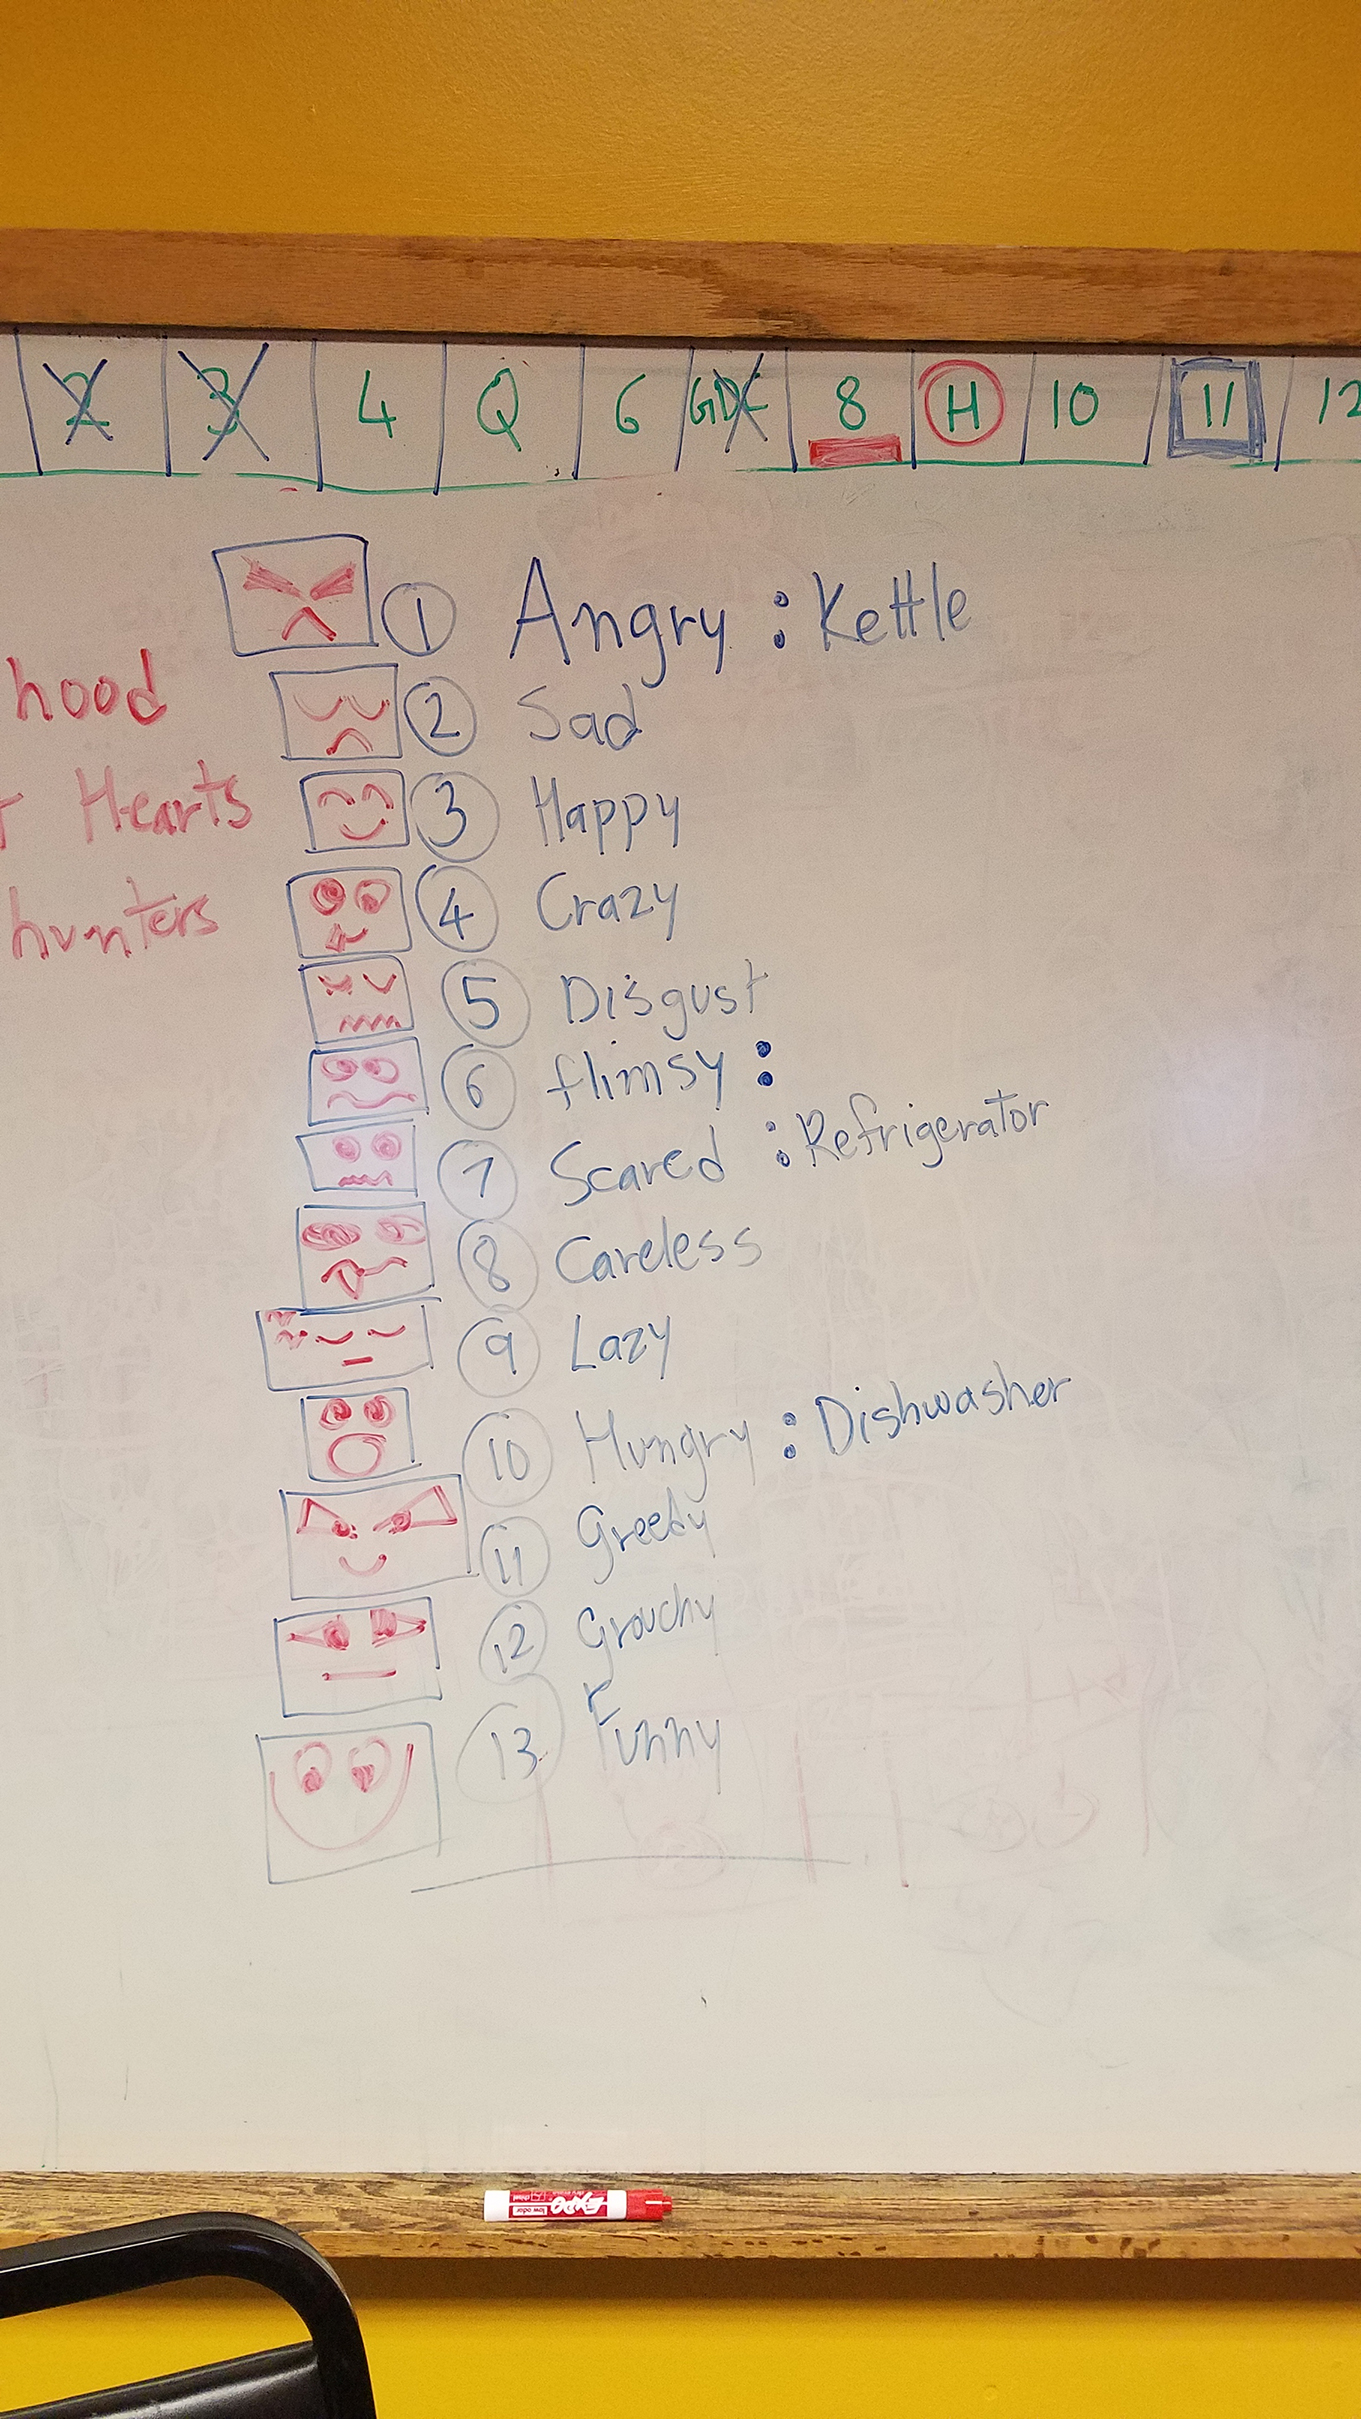 2 3 4 Q 6 GDC 8 H 10 11 12
hood
Hearts
hunters
1 Angry : Kettle
2 Sad
3 Happy
4 Crazy
5 Disgust
6 flimsy :
7 Scared : Refrigerator
8 Careless
9 Lazy
10 Hungry : Dishwasher
11 Greedy
12 Grouchy
13 Funny
EXPO
low odor